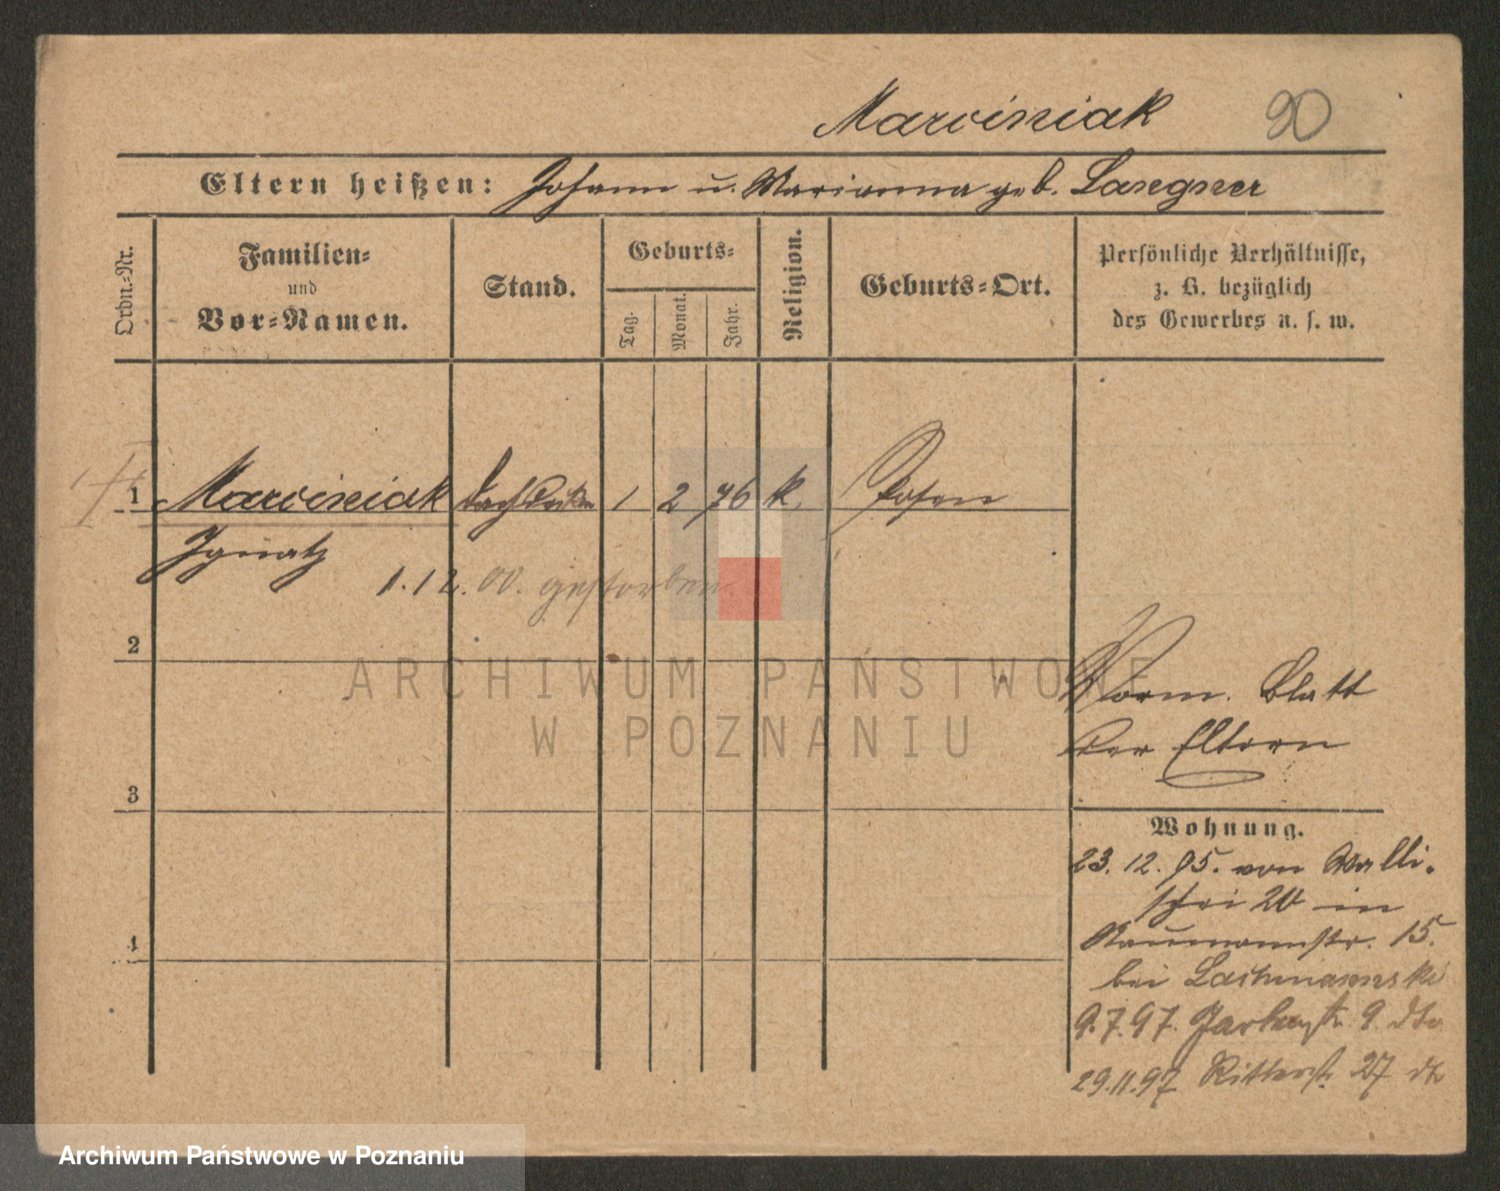 Marciniak 90
Eltern heißen: Johann u. Marianna geb. Langner
Ordn.-Nr.
Familien-
und
Vor-Namen.
Stand.
Geburts-
Tag.
Monat.
Jahr.
Religion.
Geburts-Ort.
Persönliche Verhältnisse,
z. B. bezüglich
des Gewerbes u. s. w.
1 Marciniak Dachdecker 1 2 76 k. Posen
Ignatz
1.12.00. gestorben
2
Vorm. Blatt
der Eltern
3
Wohnung.
23. 12. 95. von Walli-
schei 20 in
Naumannstr. 15.
bei Lachmanski
4
9.7.97 9 dto
29.11.97 Ritterstr. 27 dto
ARCHIWUM PAŃSTWOWE
W POZNANIU
Archiwum Państwowe w Poznaniu